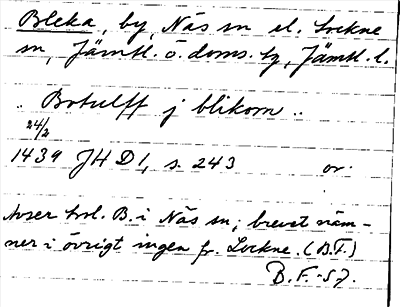 Bleka, by, Näs sn el. Lockne
sn, Jämtl. ö. doms. hg, Jämtl. l.
„ Botulff j blikom „
24/2
1439 JHD1, s. 243 or.
Avser trol. B. i Näs sn; brevet näm-
ner i övrigt ingen fr. Lockne. (B.F.)
B.F.-57.